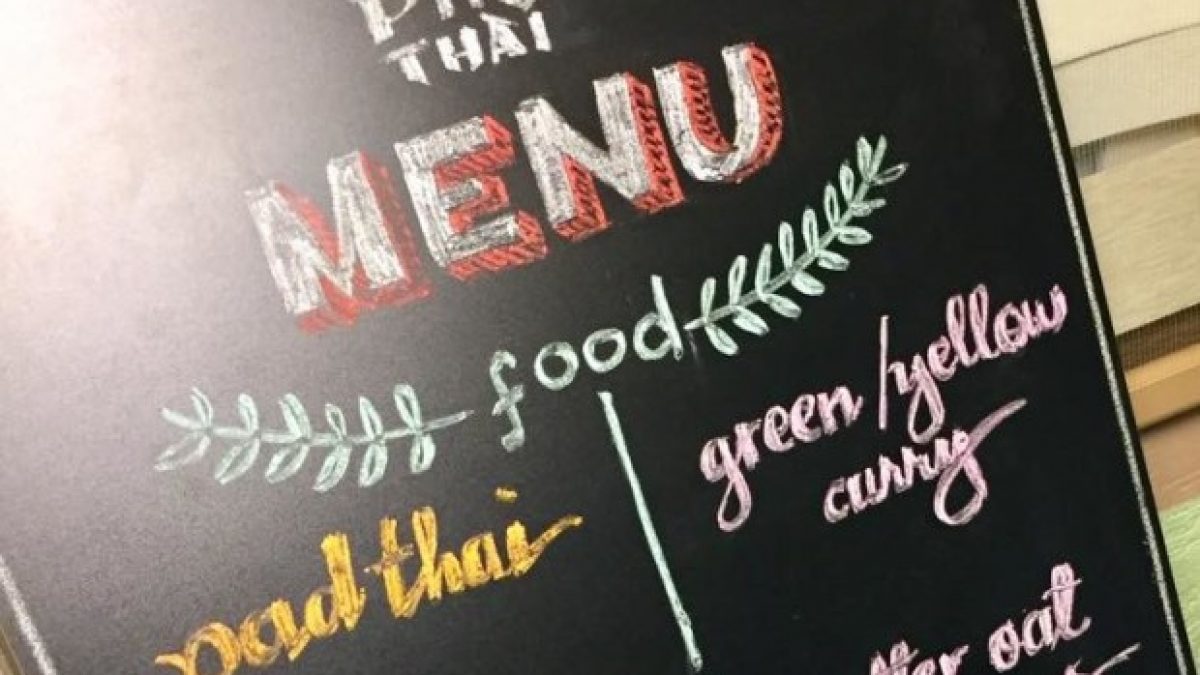 THAI
MENU
food
pad thai
green/yellow
curry
oat